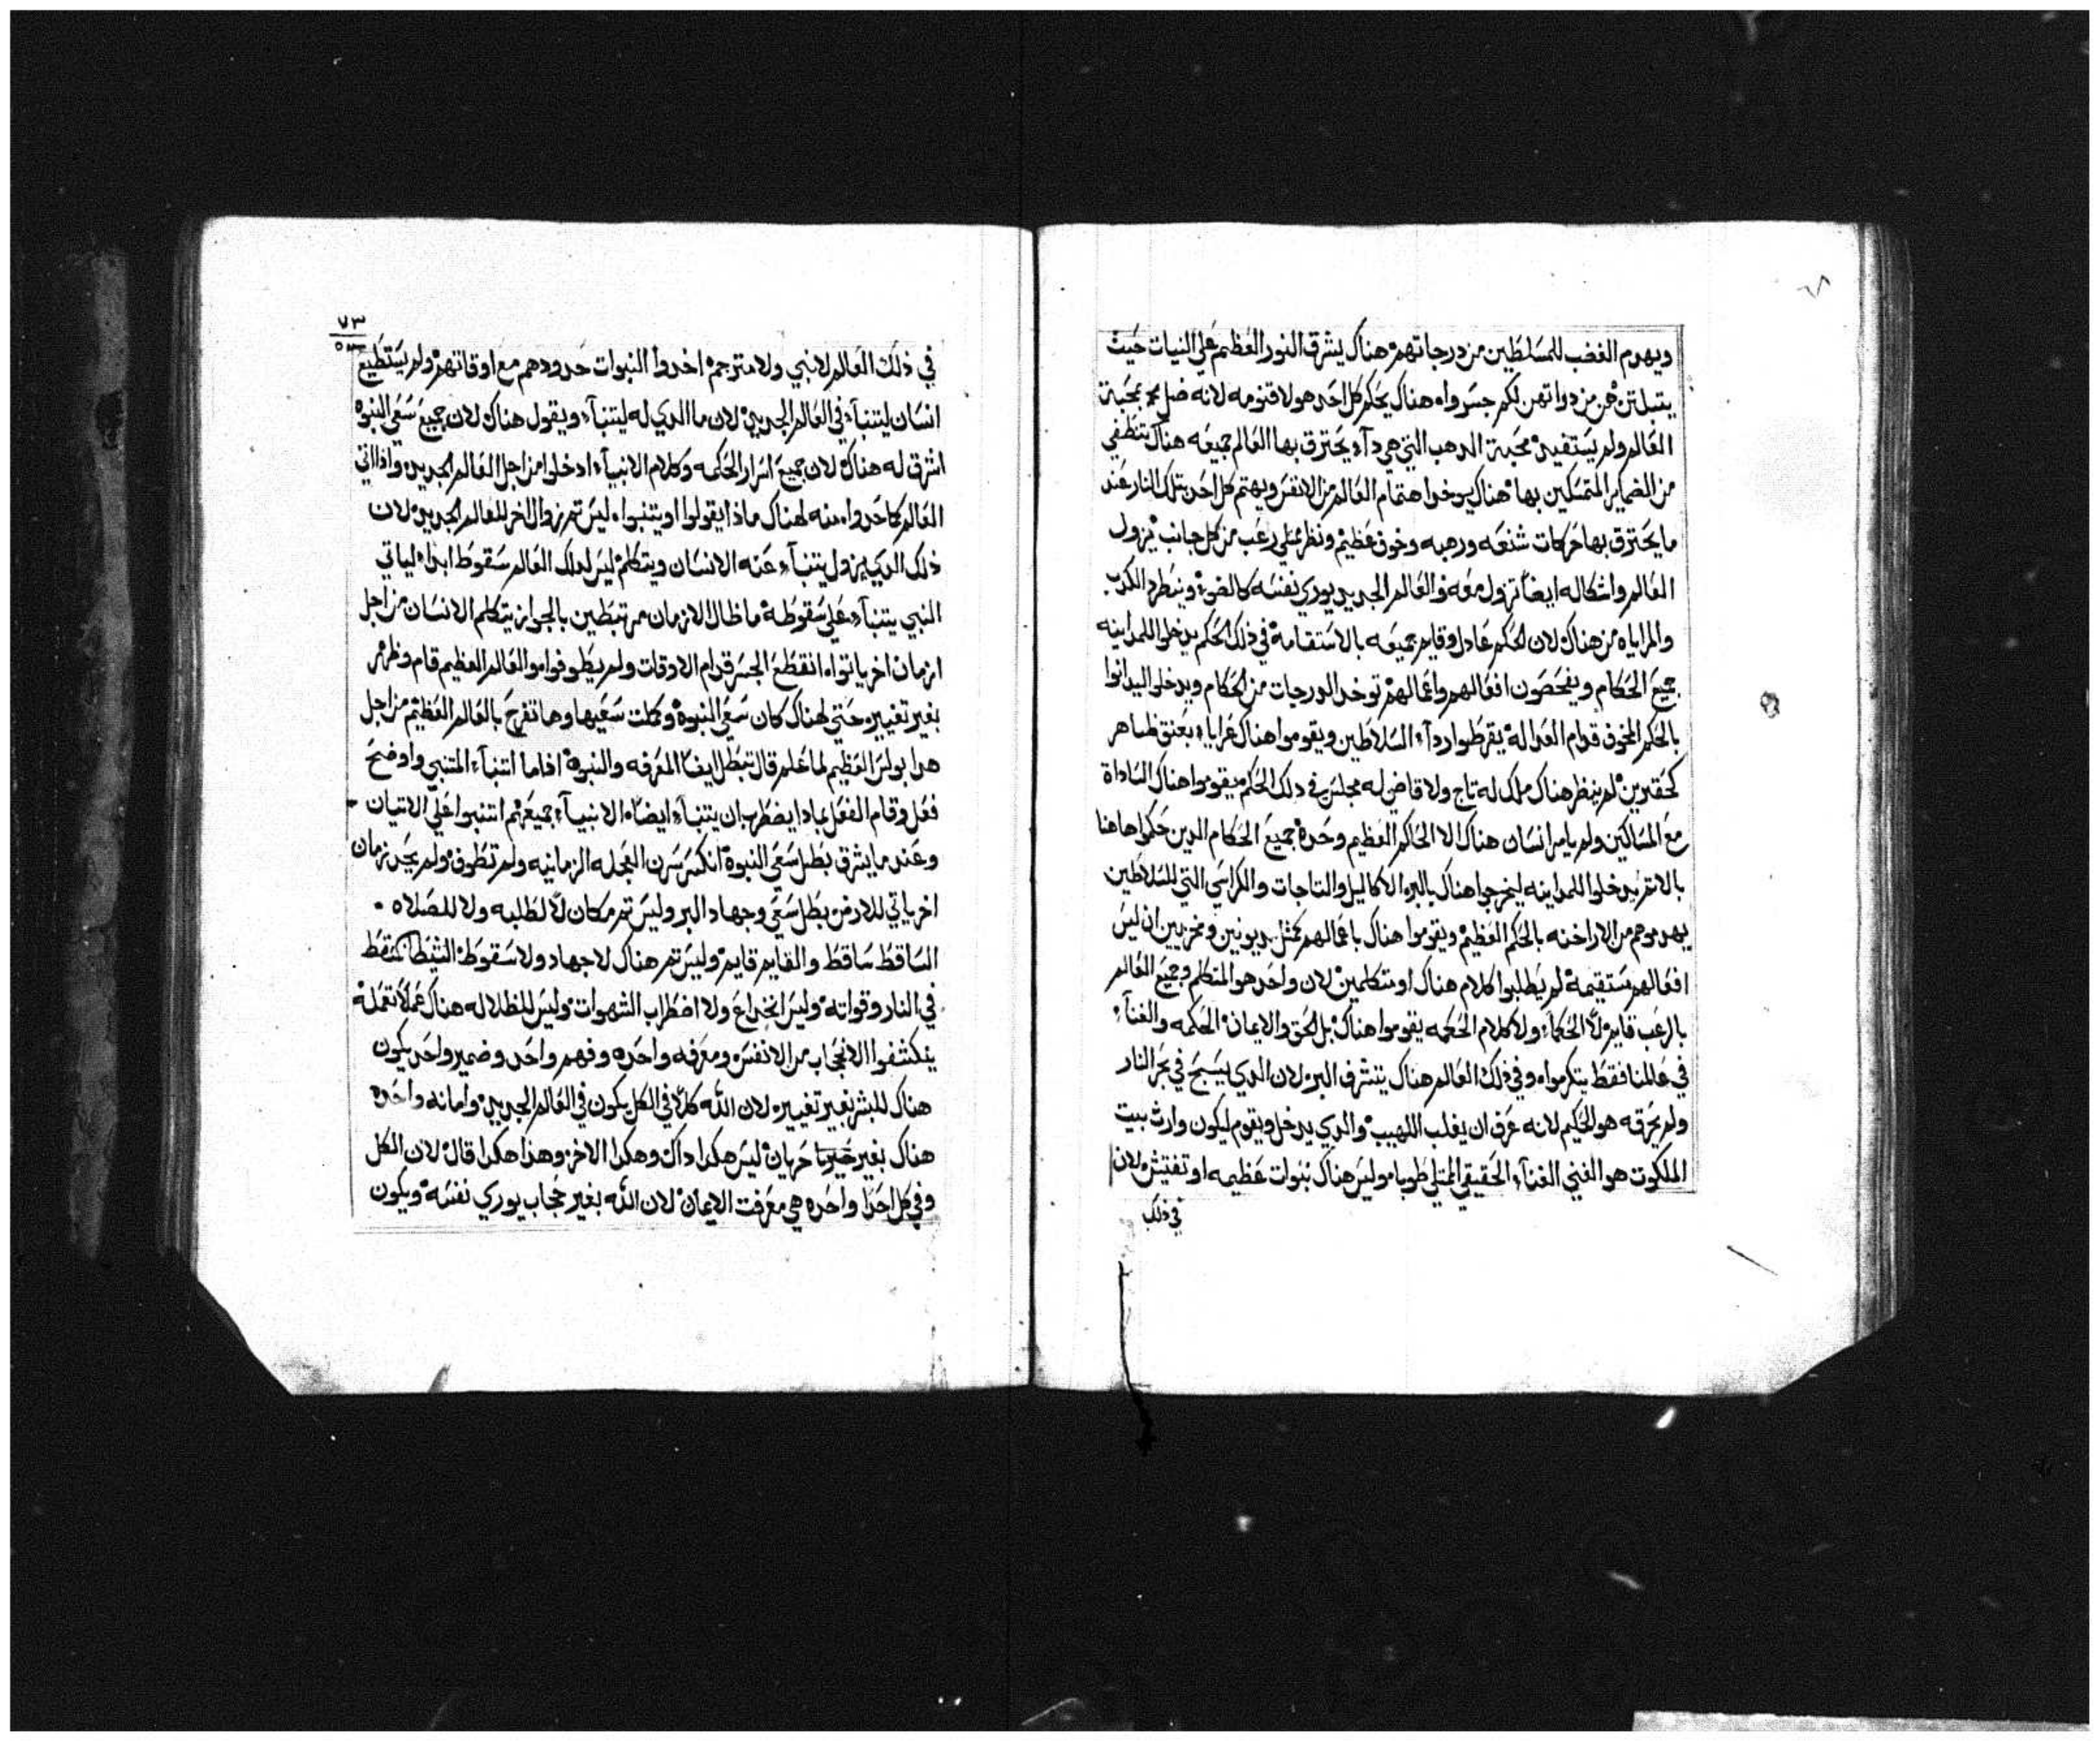 ويهدم الغضب للمسلطين من درجاتهم هناك يشرق النور العظيم علي النيات حيث
يتبلتن هن من دواتهن لكم جسروا هناك يحكم كل احد هو لاقنومه لانه ضل بمحبة
العالم ولم يستفيد محبة الدهب التي هي دآء يحترق بها العالم جميعه هناك تنطفي
من الضماير المتمسكين بها هناك يوخدوا اهتمام العالم من الانفس ويهتم كل احد بتلك النار عند
ما يحترق بها حركات شنعه ورهبه وخوف عظيم ونظر ممتلي رعب من كل جانب يزول
العالم واشكاله ايضاً تزول معه والعالم الجديد يوري نفسه كالضوء وينطرد الكدب
والمراياه من هناك لان الحكم عادل وقايم جميعه بالاستقامة في ذلك الحكم يدخلوا للمداينه
جميع الحكام ويفحصون افعالهم واعمالهم توخد الدرجات من الحكام ويدخلوا ليدانوا
بالحكم المخوف قدام العدالة يقرطوا ردآء السلاطين ويقوموا هناك عرايا بعنق ظاهر
كحقيرين لم ينظر هناك ملك له تاج ولا قاضي له مجلس في دلك الحكم يقوموا هناك الساداة
مع المساكين ولم يامر انسان هناك الا الحاكم العظيم وحده جميع الحكام الدين حكموا هاهنا
بالاتم يدخلوا للمداينه ليخرجوا هناك بالبر الاكاليل والتاجات والكراسي التي للسلاطين
يهدموهم من الاراخنه بالحكم العظيم ويقوموا هناك باعمالهم كمثل مديونين ومخزيين ان ليس
افعالهم مستقيمة لم يطلبوا كلام هناك او متكلمين لان واحد هو المتكلم وجميع العالم
بالرعب قايم لا الحكماء ولا كلام الحكمه يقوموا هناك بل الحق والايمان الحكمه والغنآء
في عالمنا فقط يتكرموا وفي ذلك العالم هناك يتشرف البر لان الدي يسبح في بحر النار
ولم يحرقه هو الحكيم لانه عرف ان يغلب اللهيب والدي يدخل ويقوم ليكون وارث بيت
الملكوت هو الغني الغنآء الحقيقي الممتلي طوبا وليس هناك نبوات عظيمه او تفتيش لان
في ذلك
٧٣
في ذلك العالم لا نبي ولا مترجم اخدوا النبوات حدودهم مع اوقاتهم ولم يستطيع
انسان ليتنبآء في العالم الجديد لان ما الدي له ليتنبآء ويقول هناك لان جميع سعي النبوه
اشرق له هناك لان جميع اسرار الحكمه وكلام الانبيآء ادخلوا من اجل العالم الجديد واذا اتي
العالم كما حدوا منه لهناك ماذا يقولوا او يتنبوا ليس تم زوال اخر للعالم الجديد لان
ذلك الدي يزول يتنبآء عنه الانسان ويتكلم ليس لدلك العالم سقوط ابداً لياتي
النبي يتنبآء علي سقوطه ما ظال الازمان مرتبطين بالجواز يتكلم الانسان من اجل
ازمان اخر ياتوا انقطع الجسر قدام الاوقات ولم يطوفوا هو العالم العظيم قام وظهر
بغير تغيير حتي لهناك كان سعي النبوه وكملت سعيها وها تفرح بالعالم العظيم من اجل
هدا بولس العظيم لما علم قال تبطل ايضاً المعرفه والنبوه اذا ما اتنبآء المتنبي واوضح
فعل وقام الفعل بمادا يضطر ان يتنبآء ايضاً الانبيآء جميعهم اتنبوا علي الاتيان
وعند ما يشرق بطل سعي النبوة انكسر سرن العجله الزمانيه ولم تطوف ولم يجد زمان
اخر ياتي للارض بطل سعي وجهاد البر وليس تم مكان لا لطلبه ولا للصلاه
الساقط ساقط والقايم قايم وليس تم هناك لا جهاد ولا سقوط الشيطان سقط
في النار وقواته وليس الخداع ولا اضطراب الشهوات وليس للظلاله هناك عملاً تعمله
ينكشفوا الحجاب من الانفس ومعرفه واحده وفهم واحد وضمير واحد يكون
هناك للبشر بغير تغيير لان الله كلاً في الكل يكون في العالم الجديد وامانه واحده
هناك بغير حريان ليس هكدا داك وهكدا الاخر وهذا هكدا قال لان الكل
وفي كل احداً واحده هي معرفت الايمان لان الله بغير حجاب يوري نفسه ويكون